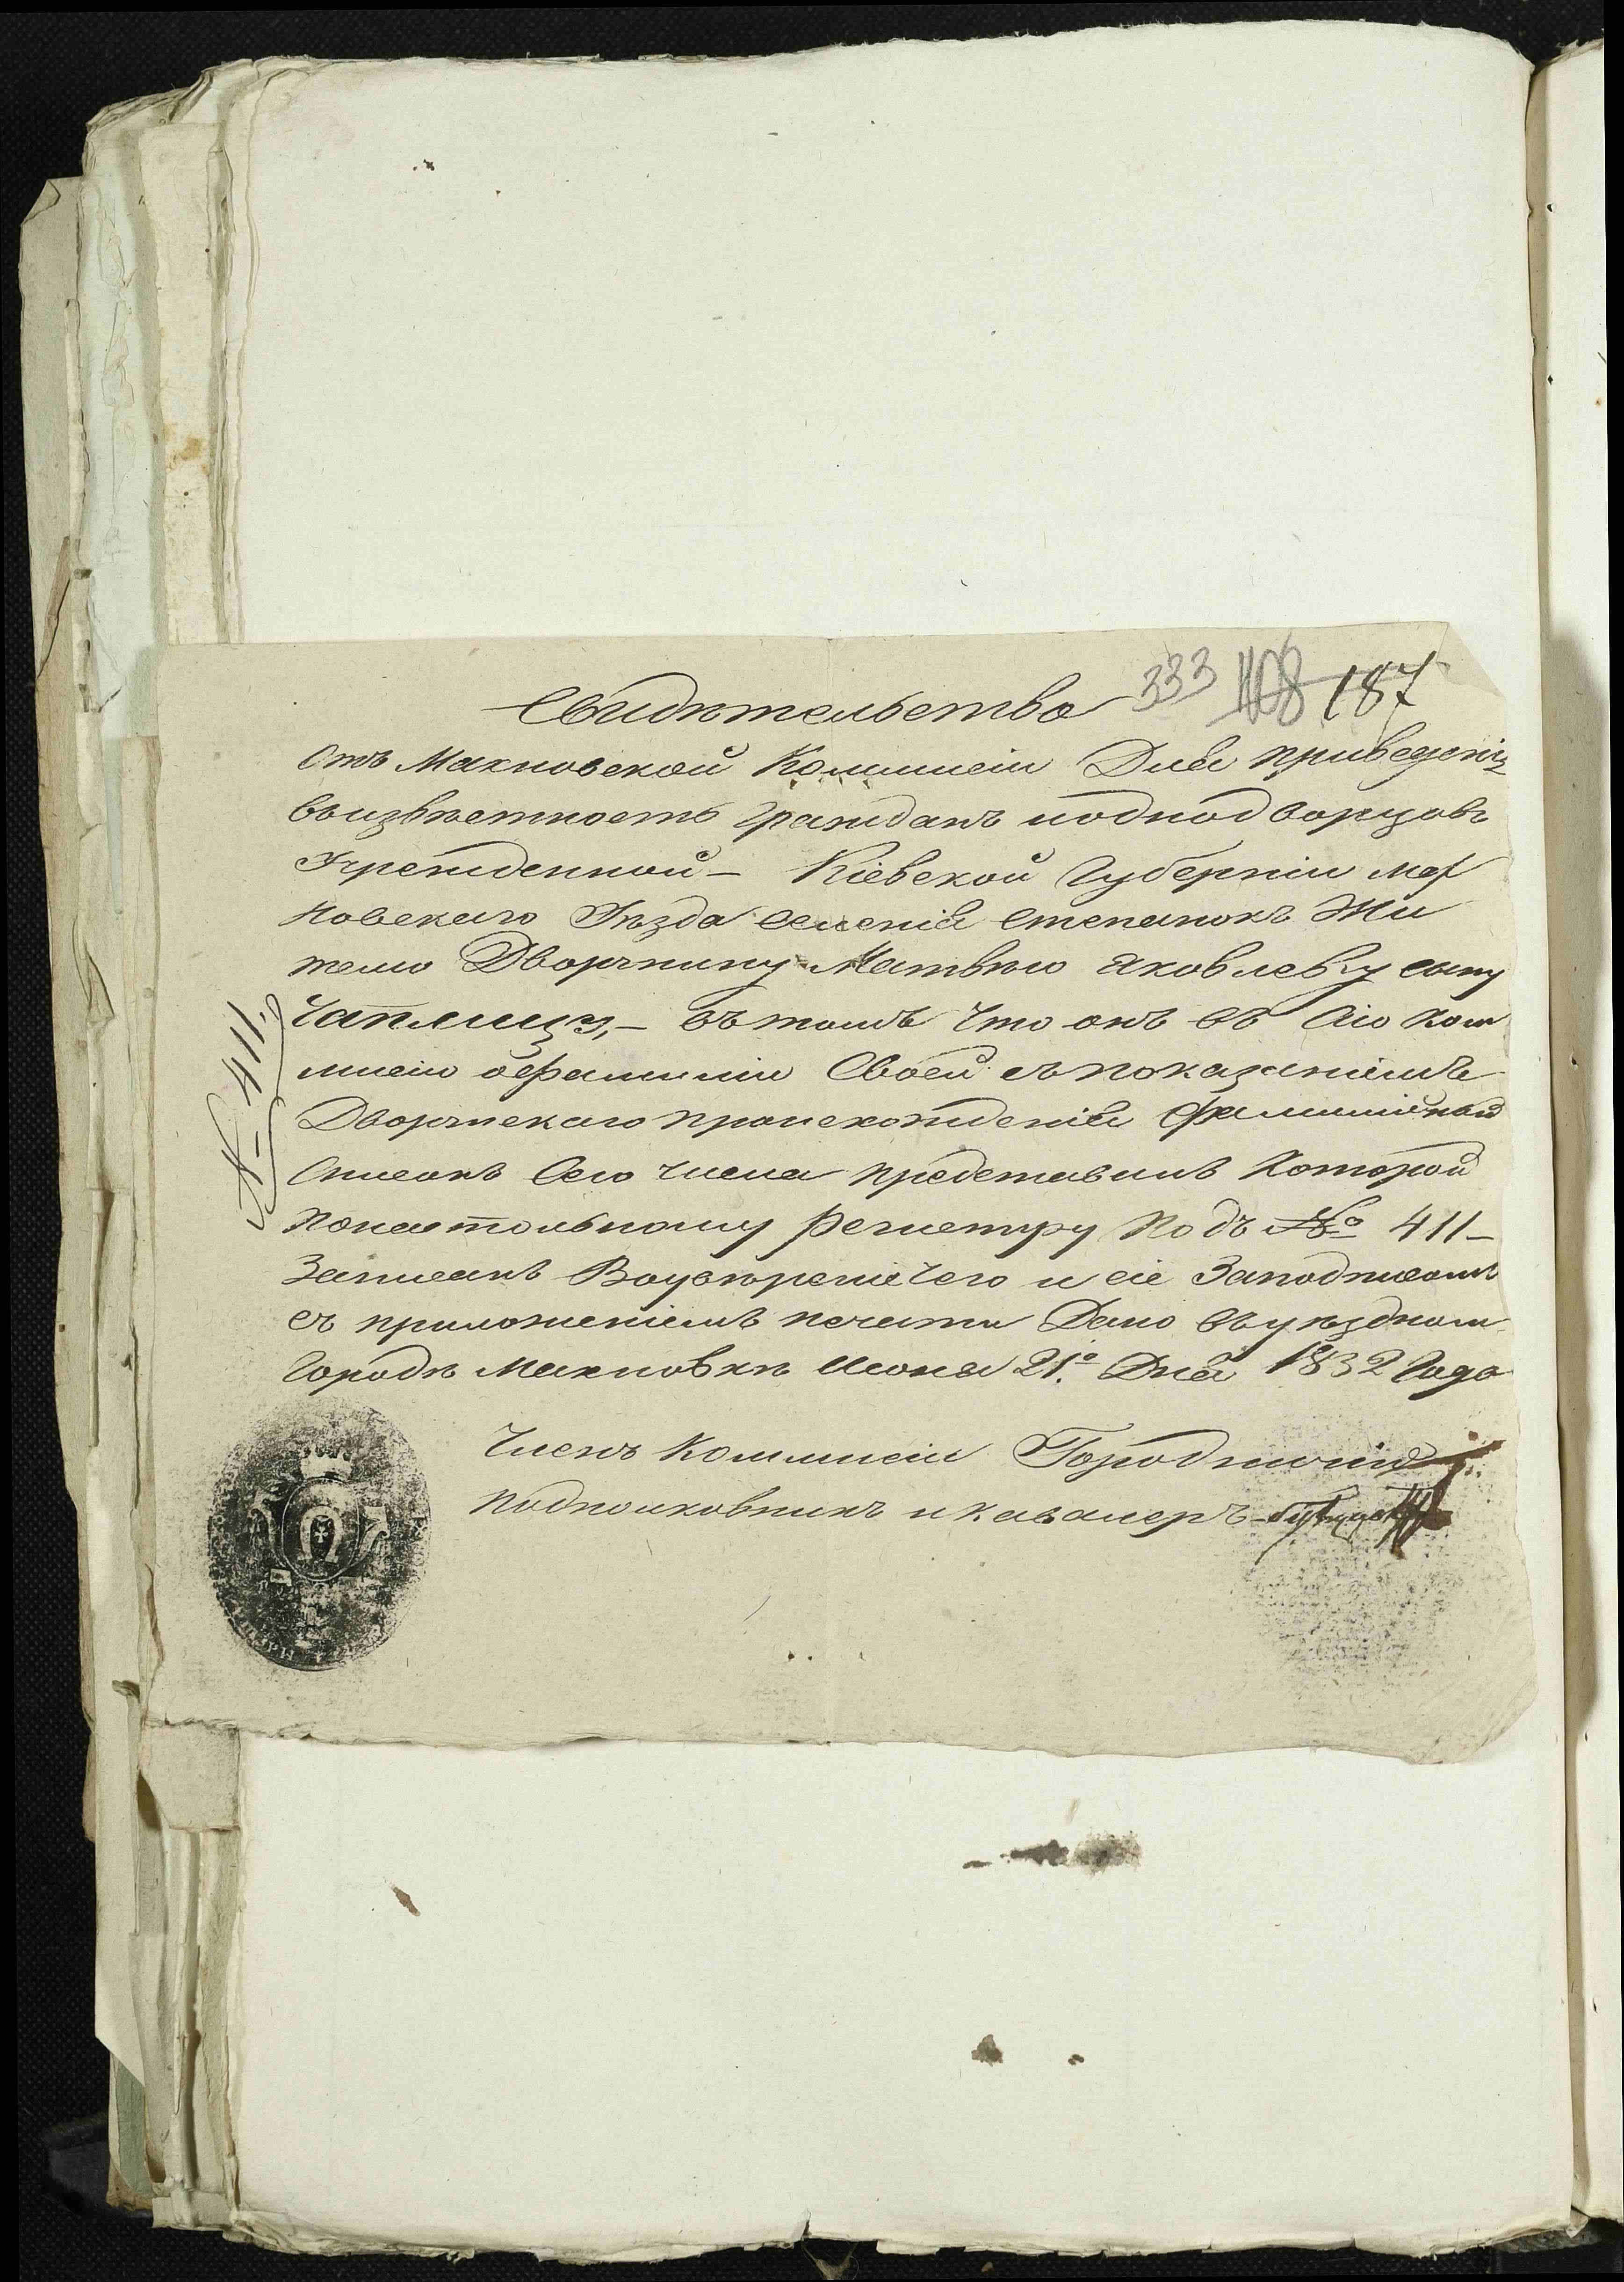 333 108 187
Свидѣтельство
Отъ Махновской Коммисіи Для приведенія
въизвѣстность Гражданъ иоднодворцовъ
Учрежденной – Кіевской Губерніи Мах
новскаго Уѣзда Селенія Степанокъ Жи
телю Дворянину Матвѣю Яковлеву сыну
въ томъ что онъ въ Сію Ком
мисію оФамиліи Своей съ показаніемъ
Дворянскаго происхожденія Фамилійной
Списокъ Сего числа представилъ Которой
понастольному регистру Подъ № 411 –
Записанъ Воувѣреніе чего и сіе Заподписомъ
съ приложеніемъ печати Дано Въуѣздномъ
Городѣ Махновкѣ Июня 21.º Дня 1832 Года
Членъ Коммисіи Городничій
Подполковникъ и кавалеръ
№ 411.